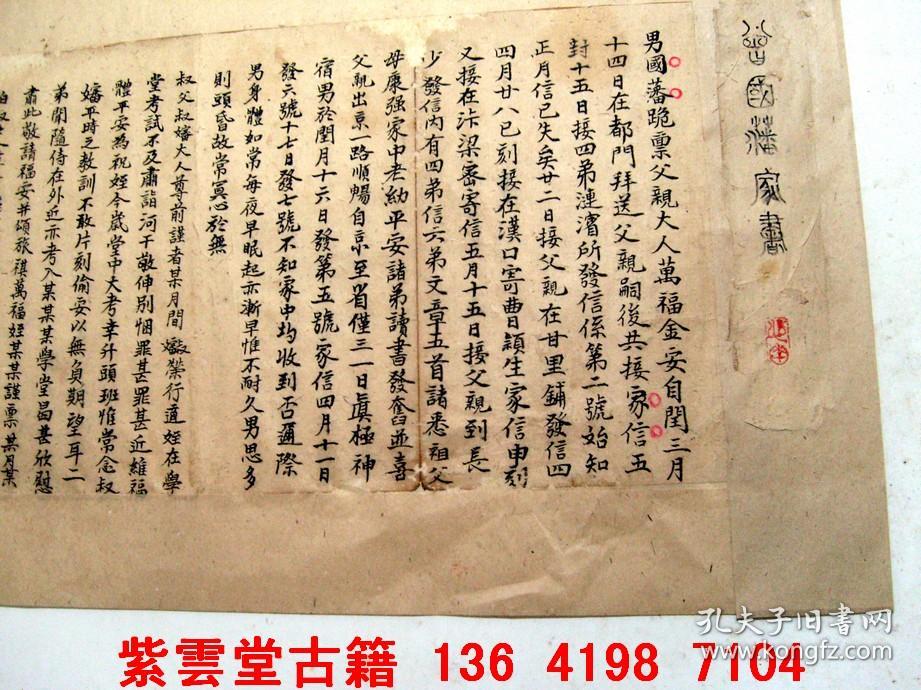 曾國藩家書
男國藩跪禀父親大人萬福金安自閏三月
十四日在都門拜送父親嗣後共接家信五
封十五日接四弟漣濱所發信係第二號始知
正月信已失矣廿二日接父親在廿里鋪發信四
四月廿八巳刻接在漢口寄曹穎生家信申刻
又接在汴梁寄信五月十五日接父親到長
沙發信內有四弟信六弟文章五首諸悉祖父
母康强家中老幼平安諸弟讀書發奮並喜
父親出京一路順暢自京至省僅三一日真極神
宿男於閏月十六日發第五號家信四月十一日
發六號十七日發七號不知家中均收到否邇際
男身體如常每夜早眠起亦漸早惟不耐久男思多
則頭昏故常冥心於無
叔父叔嬸大人尊前謹者某月間 榮行適姪在學
堂考試不及肅詣河干敬伸別悃罪甚罪甚近維福
體平安為祝姪今歲堂中大考幸升頭班惟常念叔
嬸平時之教訓不敢片刻偷安以無負期望耳二
弟閑隨侍在外近亦考入某某某學堂曷甚欣慰
肅此敬請福安并頌旅祺萬福姪某某謹禀某月某
孔夫子旧书网
www.kongfz.com
紫雲堂古籍 136 4198 7104